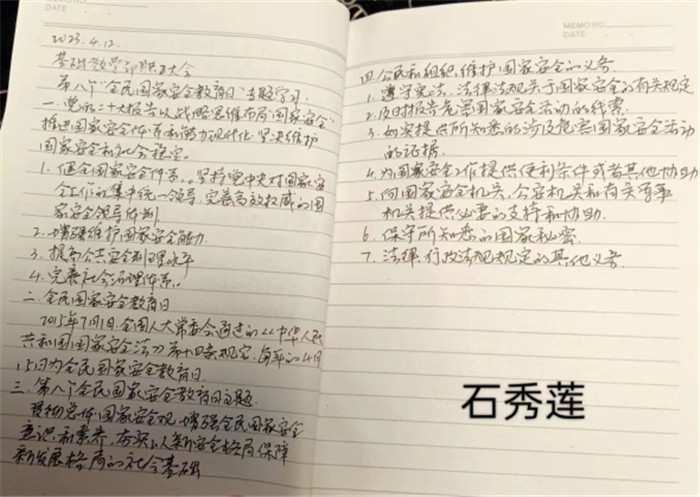 MEMO NO.
DATE
2023.4.12.
基础教学部职工大会
第八个"全民国家安全教育日"专题学习
一.党的二十大报告以战略思维布局"国家安全"
推进国家安全体系和能力现代化 坚决维护
国家安全和社会稳定。
1. 健全国家安全体系。坚持党中央对国家安
全工作的集中统一领导,完善高效权威的国
家安全领导体制
2. 增强维护国家安全能力.
3. 提高公共安全治理水平
4. 完善社会治理体系。
二.全民国家安全教育日
2015年7月1日.全国人大常委会通过的《中华人民
共和国国家安全法》第十四条规定,每年的4月
15日为全民国家安全教育日.
三.第八个全民国家安全教育日主题.
贯彻总体国家安全观.增强全民国家安全
意识和素养 夯实以新安全格局保障
新发展格局的社会基础
MEMO NO.
DATE
四.公民和组织维护国家安全的义务.
1. 遵守宪法、法律法规关于国家安全的有关规定
2. 及时报告危害国家安全活动的线索.
3. 如实提供所知悉的涉及危害国家安全活动
的证据.
4. 为国家安全工作提供便利条件或者其他协助
5. 向国家安全机关、公安机关和有关军事
机关提供必要的支持和协助.
6. 保守所知悉的国家秘密.
7. 法律、行政法规规定的其他义务.
石秀莲